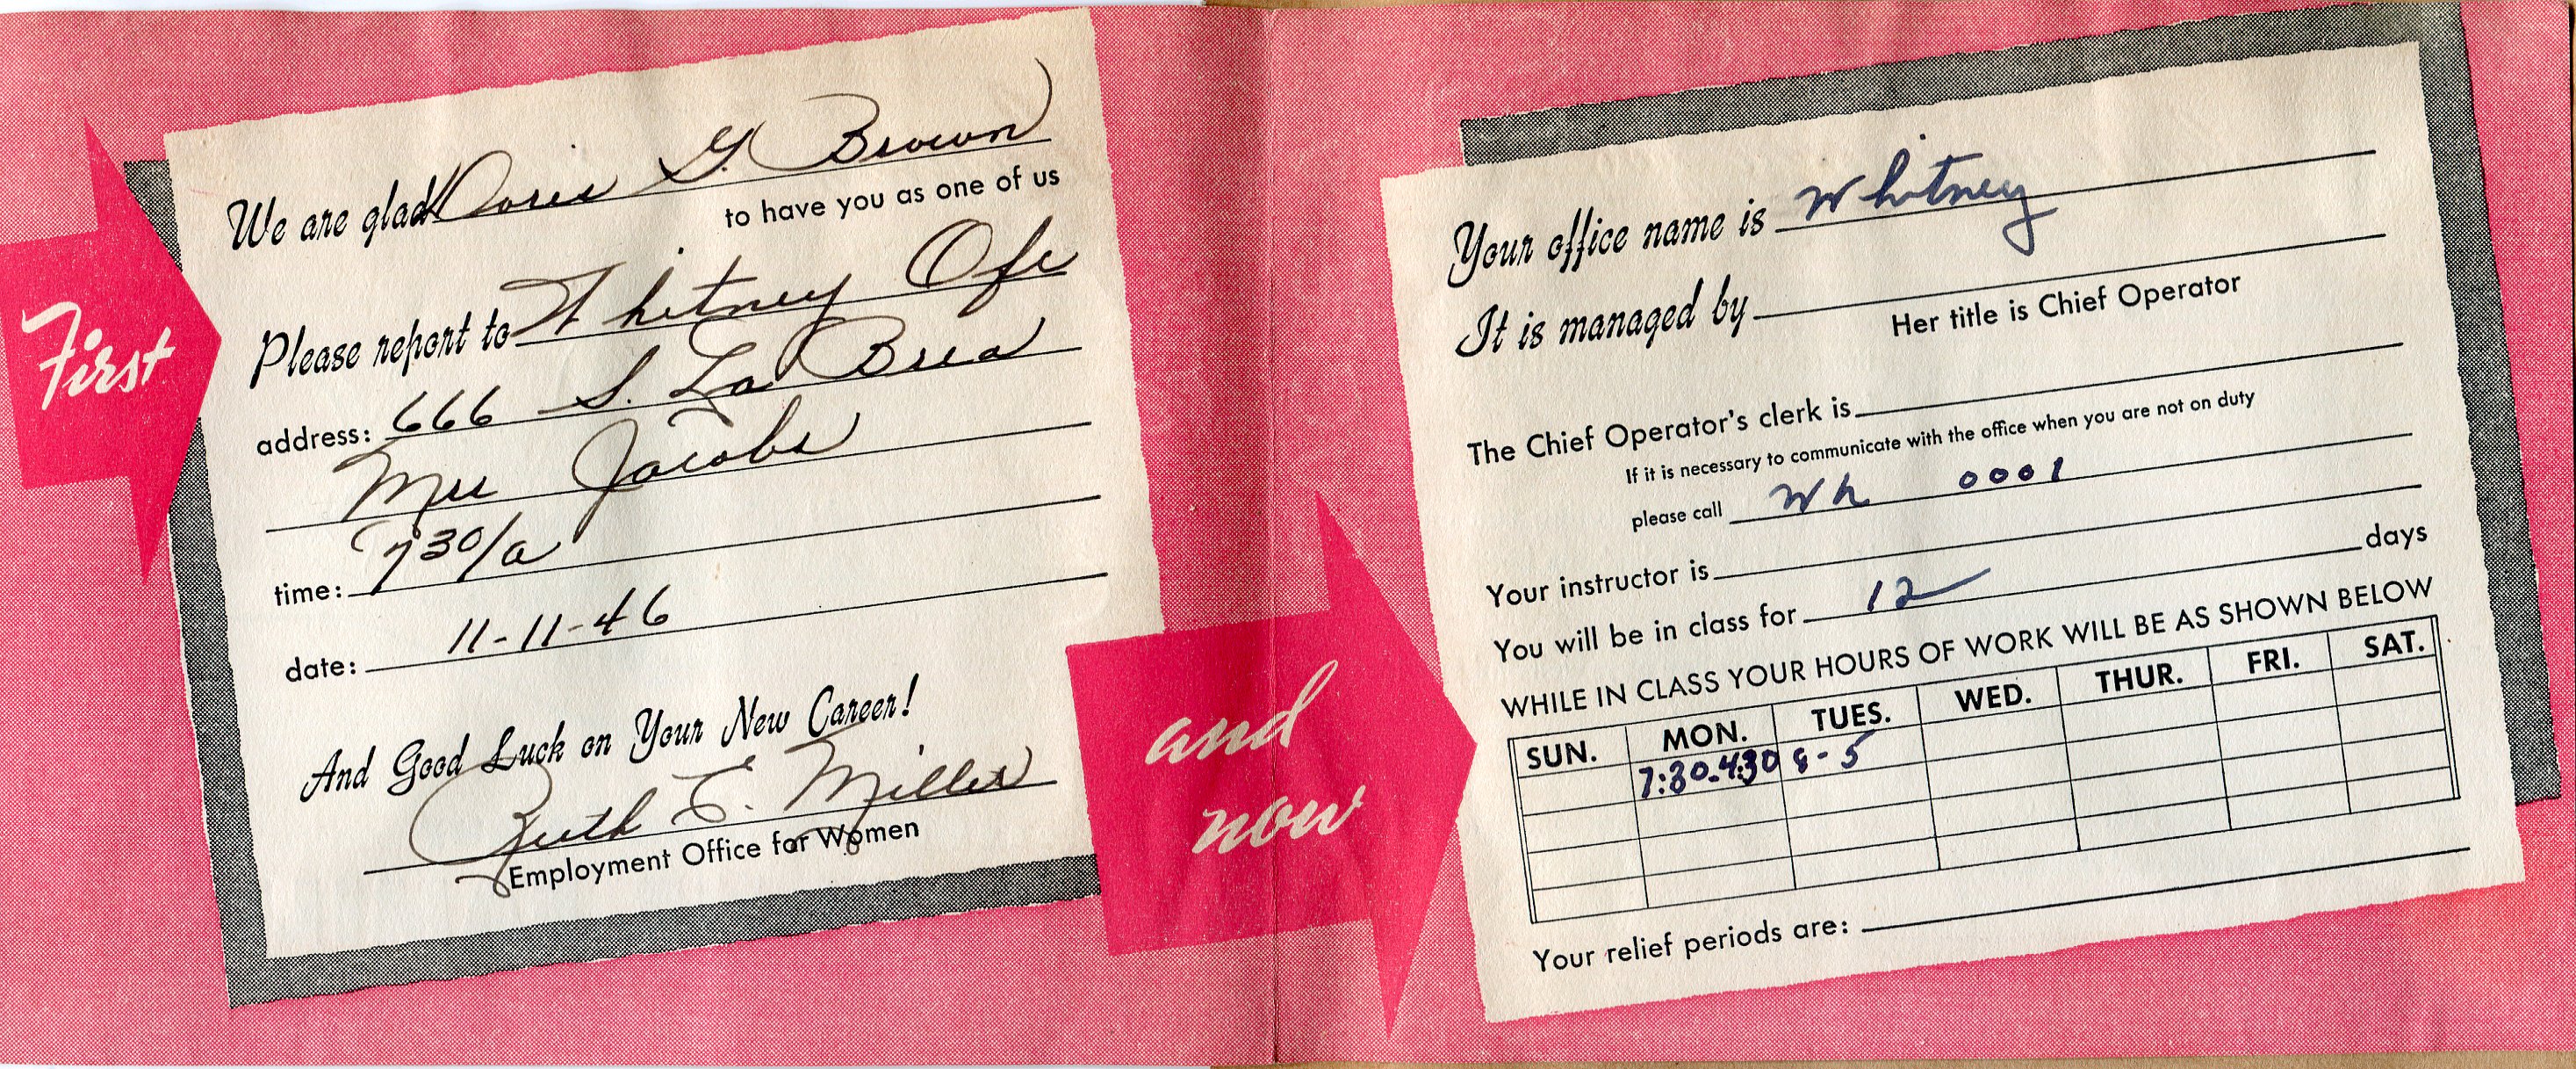 First
We are glad Doris G. Brown
to have you as one of us
Please report to Whitney Ofc
address: 666 S. La Brea
Mrs Jacobs
time: 7 30/a
date: 11-11-46
And Good Luck on Your New Career!
Ruth E. Miller
Employment Office for Women
and
now
Your office name is Whitney
It is managed by
Her title is Chief Operator
The Chief Operator's clerk is
If it is necessary to communicate with the office when you are not on duty
please call Wh 0001
Your instructor is
You will be in class for 12 days
WHILE IN CLASS YOUR HOURS OF WORK WILL BE AS SHOWN BELOW
SUN. MON. TUES. WED. THUR. FRI. SAT.
7:30-4:30 8-5
Your relief periods are: